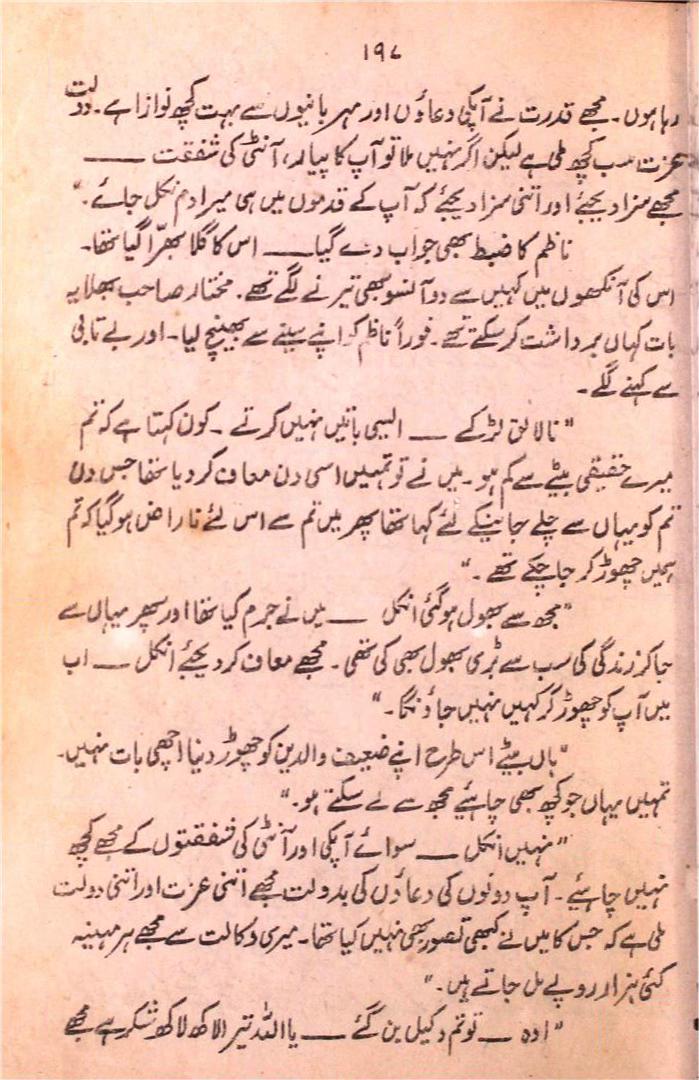 ۱۹۷
رہا ہوں۔ مجھے قدرت نے آپکی دعاؤں اور مہربانیوں سے بہت کچھ نوازا ہے۔ دولت
عزت سب کچھ ملی ہے لیکن اگر نہیں ملا تو آپ کا پیار، آنٹی کی شفقت ——
مجھے سزا دیجئے اور اتنی سزا دیجئے کہ آپ کے قدموں میں ہی میرا دم نکل جائے۔"
ناظم کا ضبط بھی جواب دے گیا —— اس کا گلا بھرّا گیا تھا۔
اس کی آنکھوں میں کہیں سے دو آنسو بھی تیرنے لگے تھے۔ مختار صاحب بھلا یہ
بات کہاں برداشت کر سکتے تھے۔ فوراً ناظم کو اپنے سینے سے بھینچ لیا۔ اور بے تابی
سے کہنے لگے۔
"نالائق لڑکے —— ایسی باتیں نہیں کرتے۔ کون کہتا ہے کہ تم
میرے حقیقی بیٹے سے کم ہو۔ میں نے تو تمہیں اسی دن معاف کر دیا تھا جس دن
تم کو یہاں سے چلے جانیکے لئے کہا تھا پھر میں تم سے اس لئے ناراض ہو گیا کہ تم
ہمیں چھوڑ کر جا چکے تھے۔"
"مجھ سے بھول ہو گئی انکل —— میں نے جرم کیا تھا اور پھر میہاں سے
جا کر زندگی کی سب سے بڑی بھول بھی کی تھی۔ مجھے معاف کر دیجئے انکل —— اب
میں آپ کو چھوڑ کر کہیں نہیں جاؤنگا۔"
"ہاں بیٹے اس طرح اپنے ضعیف والدین کو چھوڑ دینا اچھی بات نہیں۔
تمہیں یہاں جو کچھ بھی چاہئیے مجھ سے لے سکتے ہو۔"
"نہیں انکل —— سوائے آپکی اور آنٹی کی شفقتوں کے مجھے کچھ
نہیں چاہئیے۔ آپ دونوں کی دعاؤں کی بدولت مجھے اتنی عزت اور اتنی دولت
ملی ہے کہ جس کا میں نے کبھی تصور بھی نہیں کیا تھا۔ میری وکالت سے مجھے ہر مہینہ
کئی ہزار روپے مل جاتے ہیں۔"
"اوہ —— تو تم وکیل بن گئے —— یا اللہ تیرا لاکھ لاکھ شکر ہے مجھے